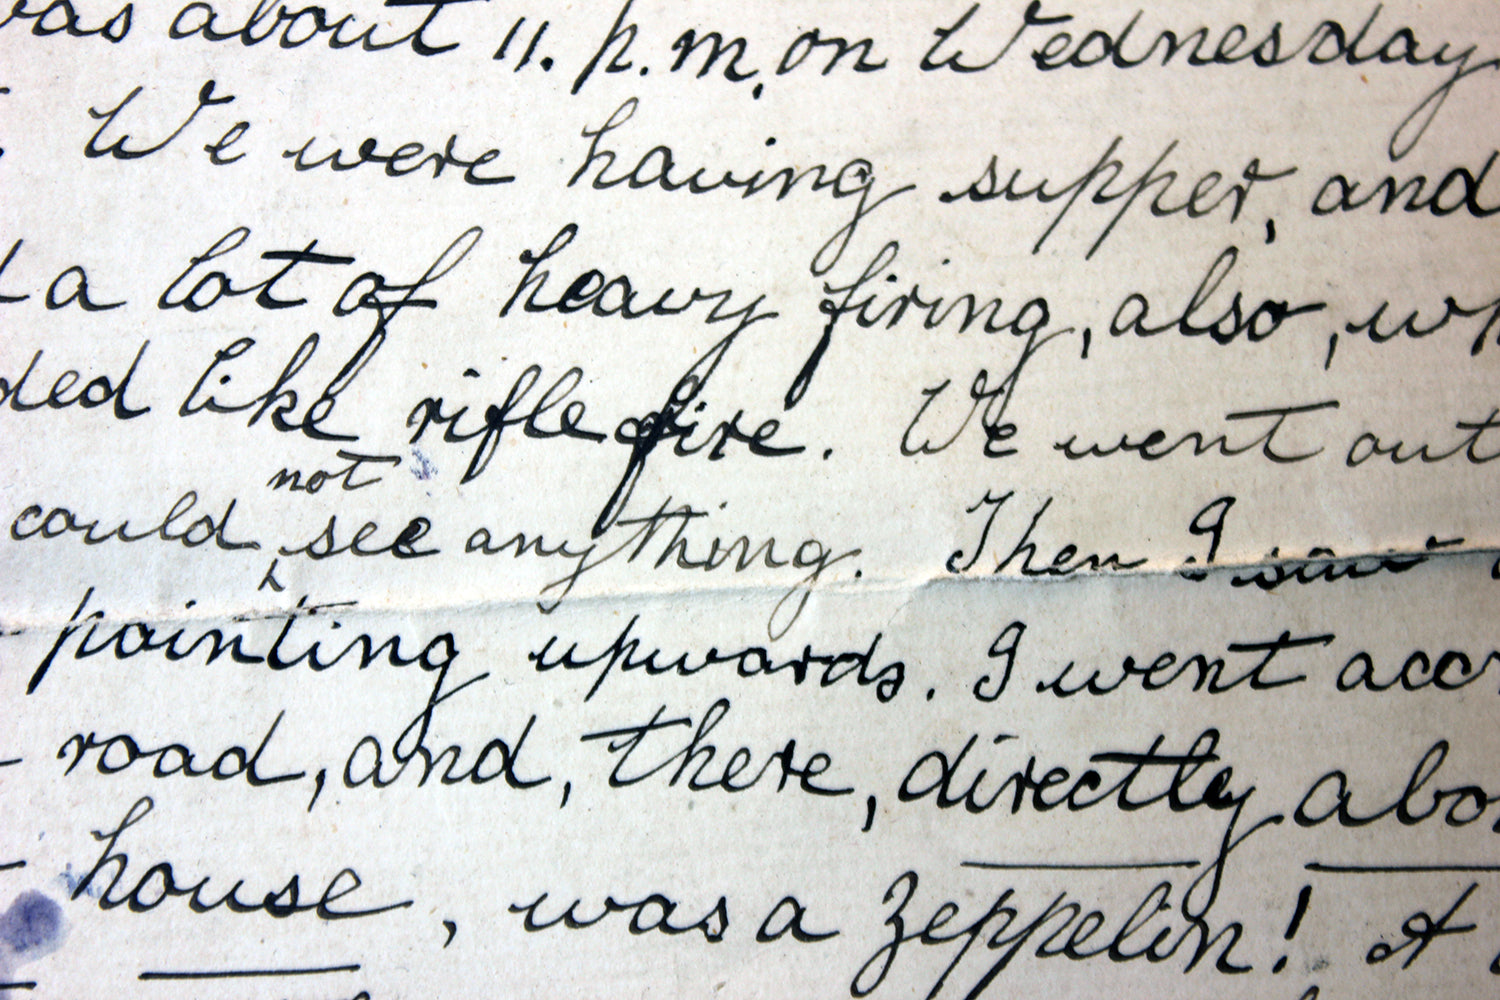 was about 11. p.m, on Wednesday
We were having supper, and
a lot of heavy firing, also, wh
ded like rifle fire. We went out
not
could see anything. Then I saw
pointing upwards. I went acc
road, and, there, directly abo
house, was a Zeppelin! A